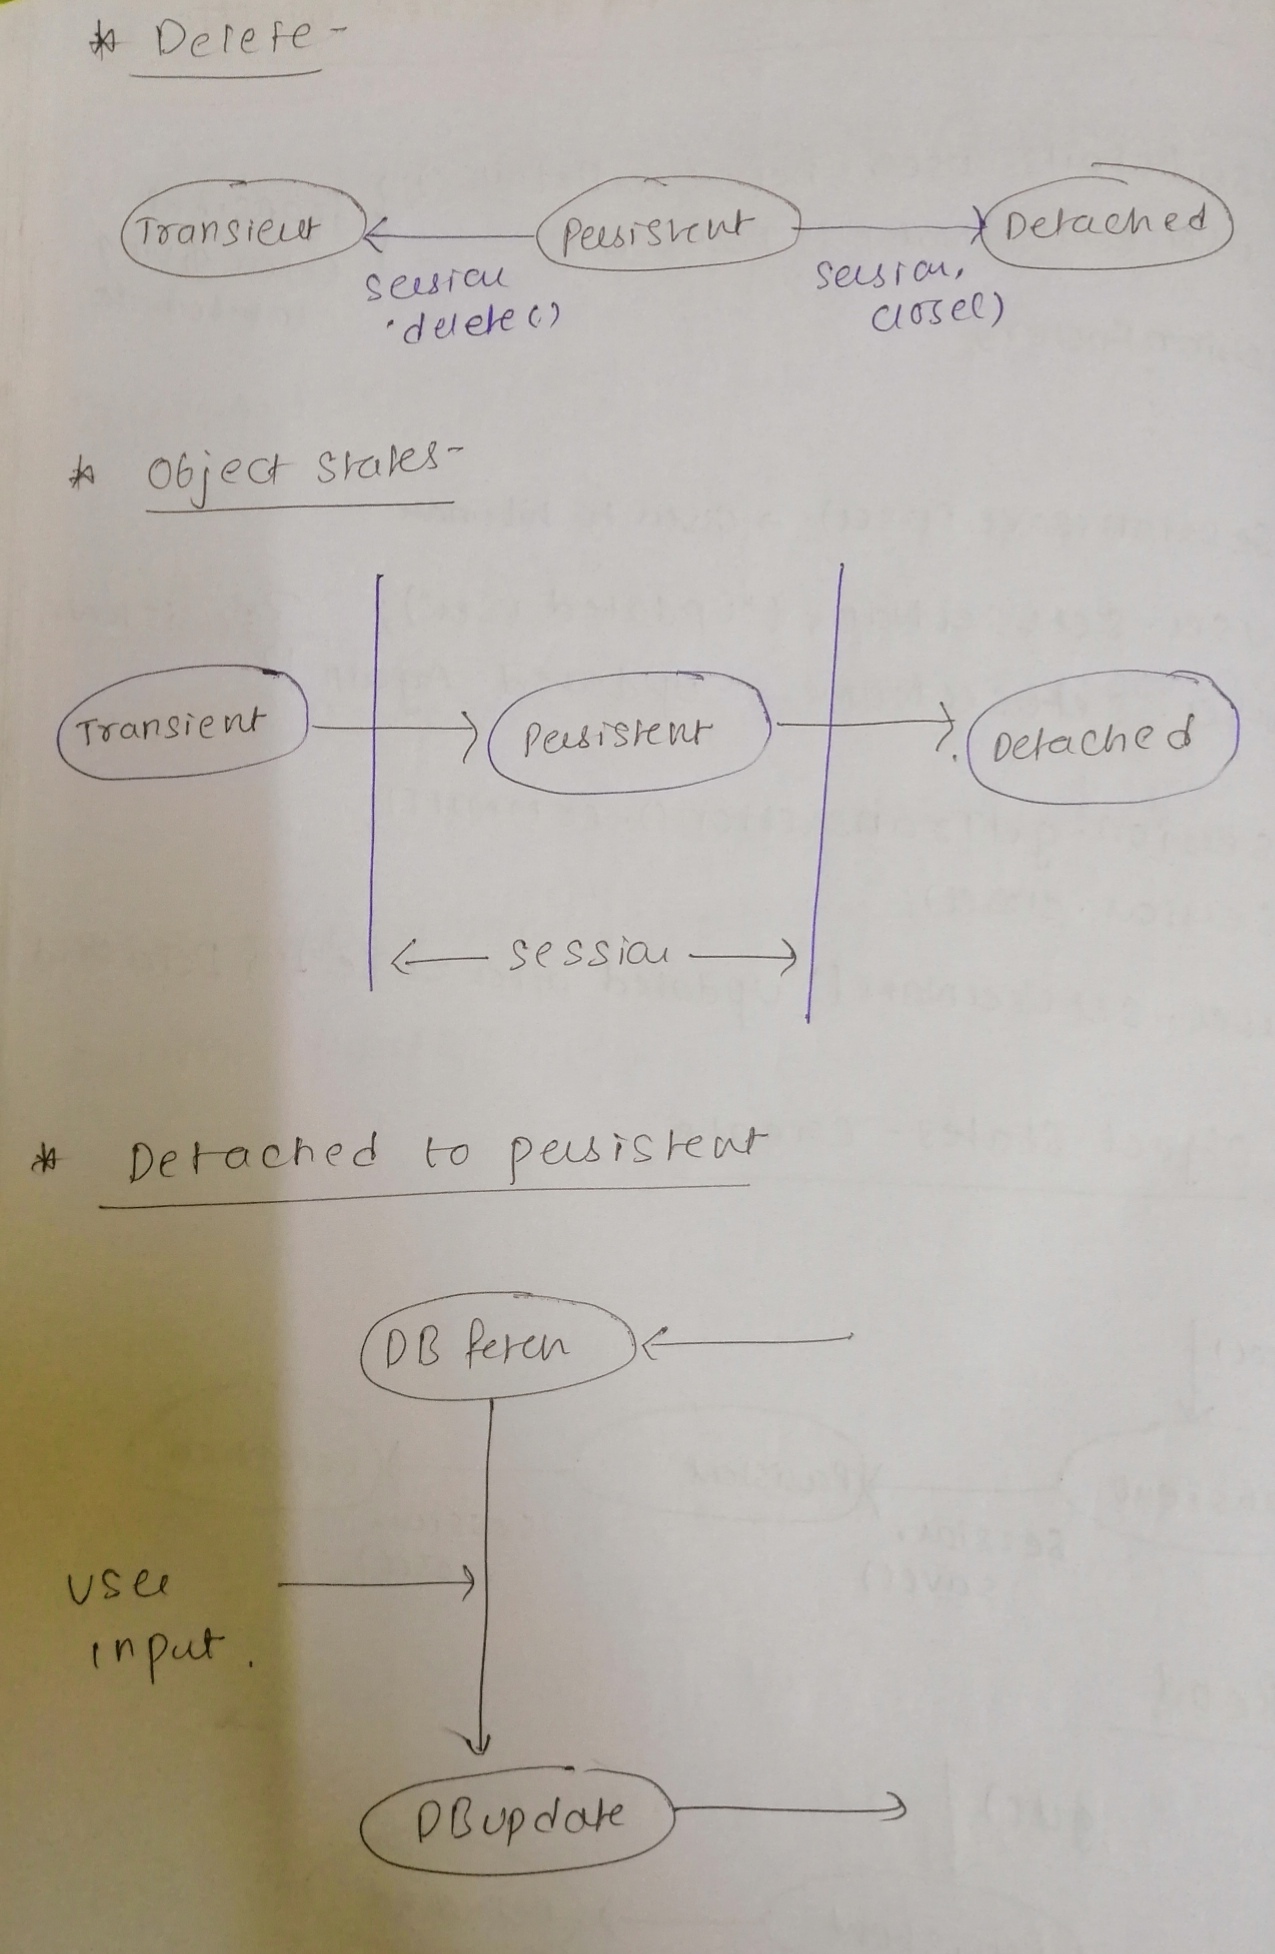 * Delete -
Transient
Persistent
Detached
session
.delete()
session.
close()
* Object states-
Transient
Persistent
Detached
session
* Detached to persistent
DB fetch
user
input.
DB update